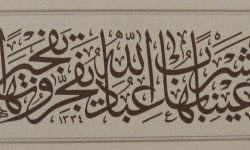 عينا يشرب بها عباد الله يفجرونها تفجيرا
١٣٣٤